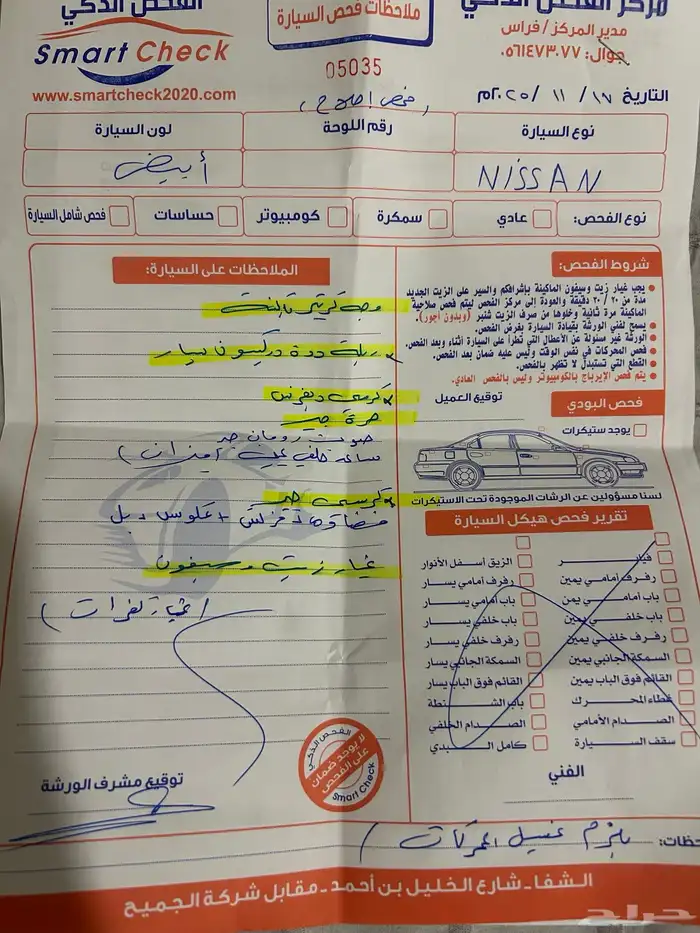 مركز الفحص الذكي
مدير المركز / فراس
جوال: ٠٥٦١٤٧٣٠٧٧
ملاحظات فحص السيارة
الفحص الذكي
Smart Check
www.smartcheck2020.com
05035
التاريخ ١٧ / ١١ / ٢٠٢٥م
(فحص اصلاح)
نوع السيارة
رقم اللوحة
لون السيارة
NISSAN
أبيض
نوع الفحص:
عادي
سمكرة
كومبيوتر
حساسات
فحص شامل السيارة
شروط الفحص:
يجب غيار زيت وسيفون الماكينة بإشرافكم والسير على الزيت الجديد
مدة من ٢٠ / ٣٠ دقيقة والعودة إلى مركز الفحص ليتم فحص صلاحية
الماكينة مرة ثانية وخلوها من صرف الزيت شنبر (وبدون أجور).
يسمح لفني الورشة بقيادة السيارة بغرض الفحص.
الورشة غير مسئولة عن الأعطال التي تطرأ على السيارة أثناء وبعد الفحص.
فحص المحركات في نفس الوقت وليس عليه ضمان بعد الفحص.
القطع التي تستبدل لا تظهر بالفحص.
يتم فحص الإيرباج بالكومبيوتر وليس بالفحص العادي.
فحص البودي
توقيع العميل
يوجد ستيكرات
لسنا مسؤولين عن الرشات الموجودة تحت الاستيكرات
تقرير فحص هيكل السيارة
رفرف أمامي يمين
باب أمامي يمن
باب خلفي يمين
رفرف خلفي يمين
السمكة الجانبي يمين
القائم فوق الباب يمين
غطاء المحرك
الصدام الأمامي
سقف السيارة
الزيق أسفل الأنوار
رفرف أمامي يسار
باب أمامي يسار
باب خلفي يسار
رفرف خلفي يسار
السمكة الجانبي يسار
القائم فوق الباب يسار
باب الشنطة
الصدام الخلفي
كامل البدي
الفني
الملاحظات على السيارة:
وجه كرتير
كرسي
كرسي جير
غيار زيت وسيفون
توقيع مشرف الورشة
الفحص الذكي
لا يوجد ضمان
على الفحص
Smart Check
يلزم غسيل المحركات
الشفا - شارع الخليل بن أحمد - مقابل شركة الجميح
حراج